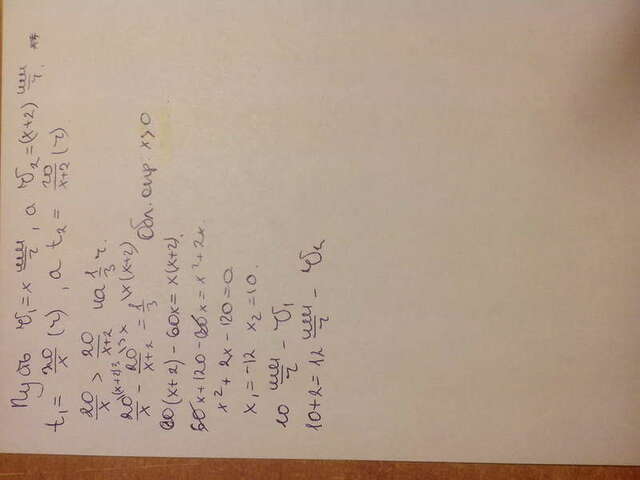 Пусть V₁ = x км/ч, а V₂ = (x+2) км/ч.
t₁ = 20/x (ч), а t₂ = 20/(x+2) (ч)
20/x > 20/(x+2) на 1/3 ч.
20/x \(x+2)3 - 20/(x+2) \3x = 1/3 \x(x+2) Обл. опр. x>0
60(x+2) - 60x = x(x+2)
60x+120-60x = x²+2x
x²+2x-120=0
x₁=-12 x₂=10.
10 км/ч - V₁
10+2=12 км/ч - V₂